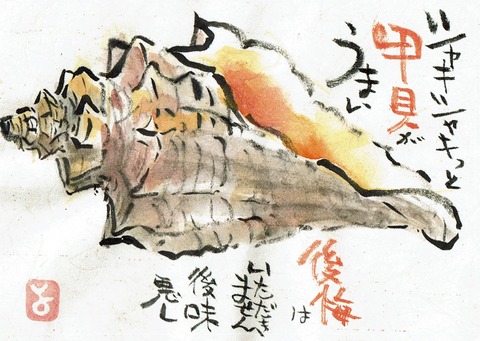 シャキシャキっと
甲貝が
うまい
後悔は
いただき
ません、
後味
悪し